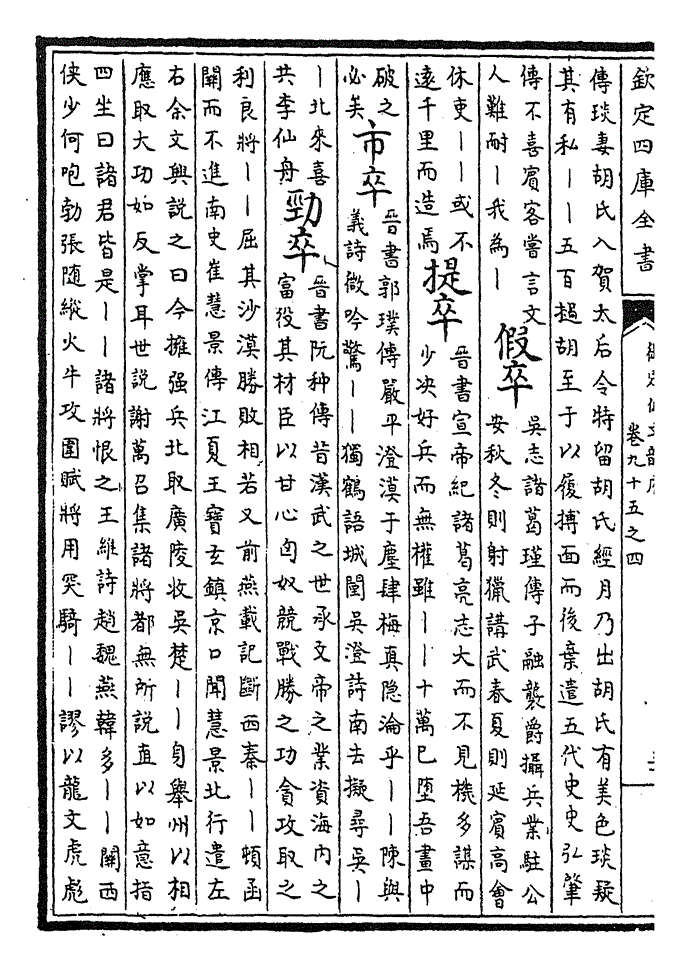 欽定四庫全書
卷九十五之四
傳琰妻胡氏入賀太后令特留胡氏經月乃出胡氏有美色琰疑
其有私｜｜五百撾胡至于以履搏面而後棄遣五代史史弘肇
傳不喜賓客嘗言文
人難耐｜我為｜
假卒
吳志諸葛瑾傳子融襲爵攝兵業駐公
安秋冬則射獵講武春夏則延賓高會
休吏｜｜或不
遠千里而造焉
提卒
晉書宣帝紀諸葛亮志大而不見機多謀而
少决好兵而無權雖｜｜十萬已墮吾畫中
破之
必矣
市卒
晉書郭璞傳嚴平澄漠于塵肆梅真隐淪乎｜｜陳與
義詩微吟驚｜｜獨鶴語城闉吳澄詩南去擬尋吳｜
｜北來喜
共李仙舟
勁卒
晉書阮种傳昔漢武之世承文帝之業資海内之
富役其材臣以甘心匈奴競戰勝之功貪攻取之
利良將｜｜屈其沙漠勝敗相若又前燕載記斷西秦｜｜頓函
關而不進南史崔慧景傳江夏王寶玄鎮京口聞慧景北行遣左
右余文興説之曰今擁强兵北取廣陵收吳楚｜｜身舉州以相
應取大功如反掌耳世説謝萬召集諸將都無所説直以如意指
四坐曰諸君皆是｜｜諸將恨之王維詩趙魏燕韓多｜｜關西
侠少何咆勃張随縱火牛攻圍賦將用突騎｜｜謬以龍文虎彪